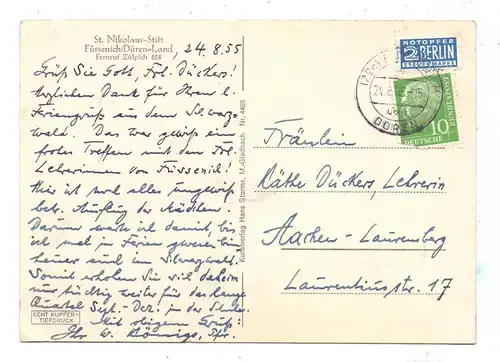 St. Nikolaus-Stift
Füssenich/Düren-Land
Fernruf Zülpich 424
24.8.55
Grüß Sie Gott, Frl. Dückers!
Herzlichen Dank für Ihren l.
Feriengruß aus dem Schwarz-
wald. Das war gewiß ein
frohes Treffen mit den Frl.
Lehrerinnen von Füssenich!
Hier ist noch alles ungewiß
betr. Ausflug der Mädchen.
Darum warte ich damit, bis
ich mal in Ferien gewesen bin
und im Schwarzwald.
Somit erholen Sie sich daheim
nur tüchtig weiter für das lange
Quartal Sept.-Dez. in der Schule.
Mit obigem Gruß!
Ihr W. Königs, Pfr.
ECHT KUPFER-
TIEFDRUCK
Kunstverlag Hans Storms, M.-Gladbach, Nr. 4465
NOTOPFER
2 BERLIN
STEUERMARKE
DEUTSCHE BUNDESPOST
10
24.8.
DÜREN
Fräulein
Käthe Dückers, Lehrerin
Aachen-Laurensberg
Laurentiusstr. 17